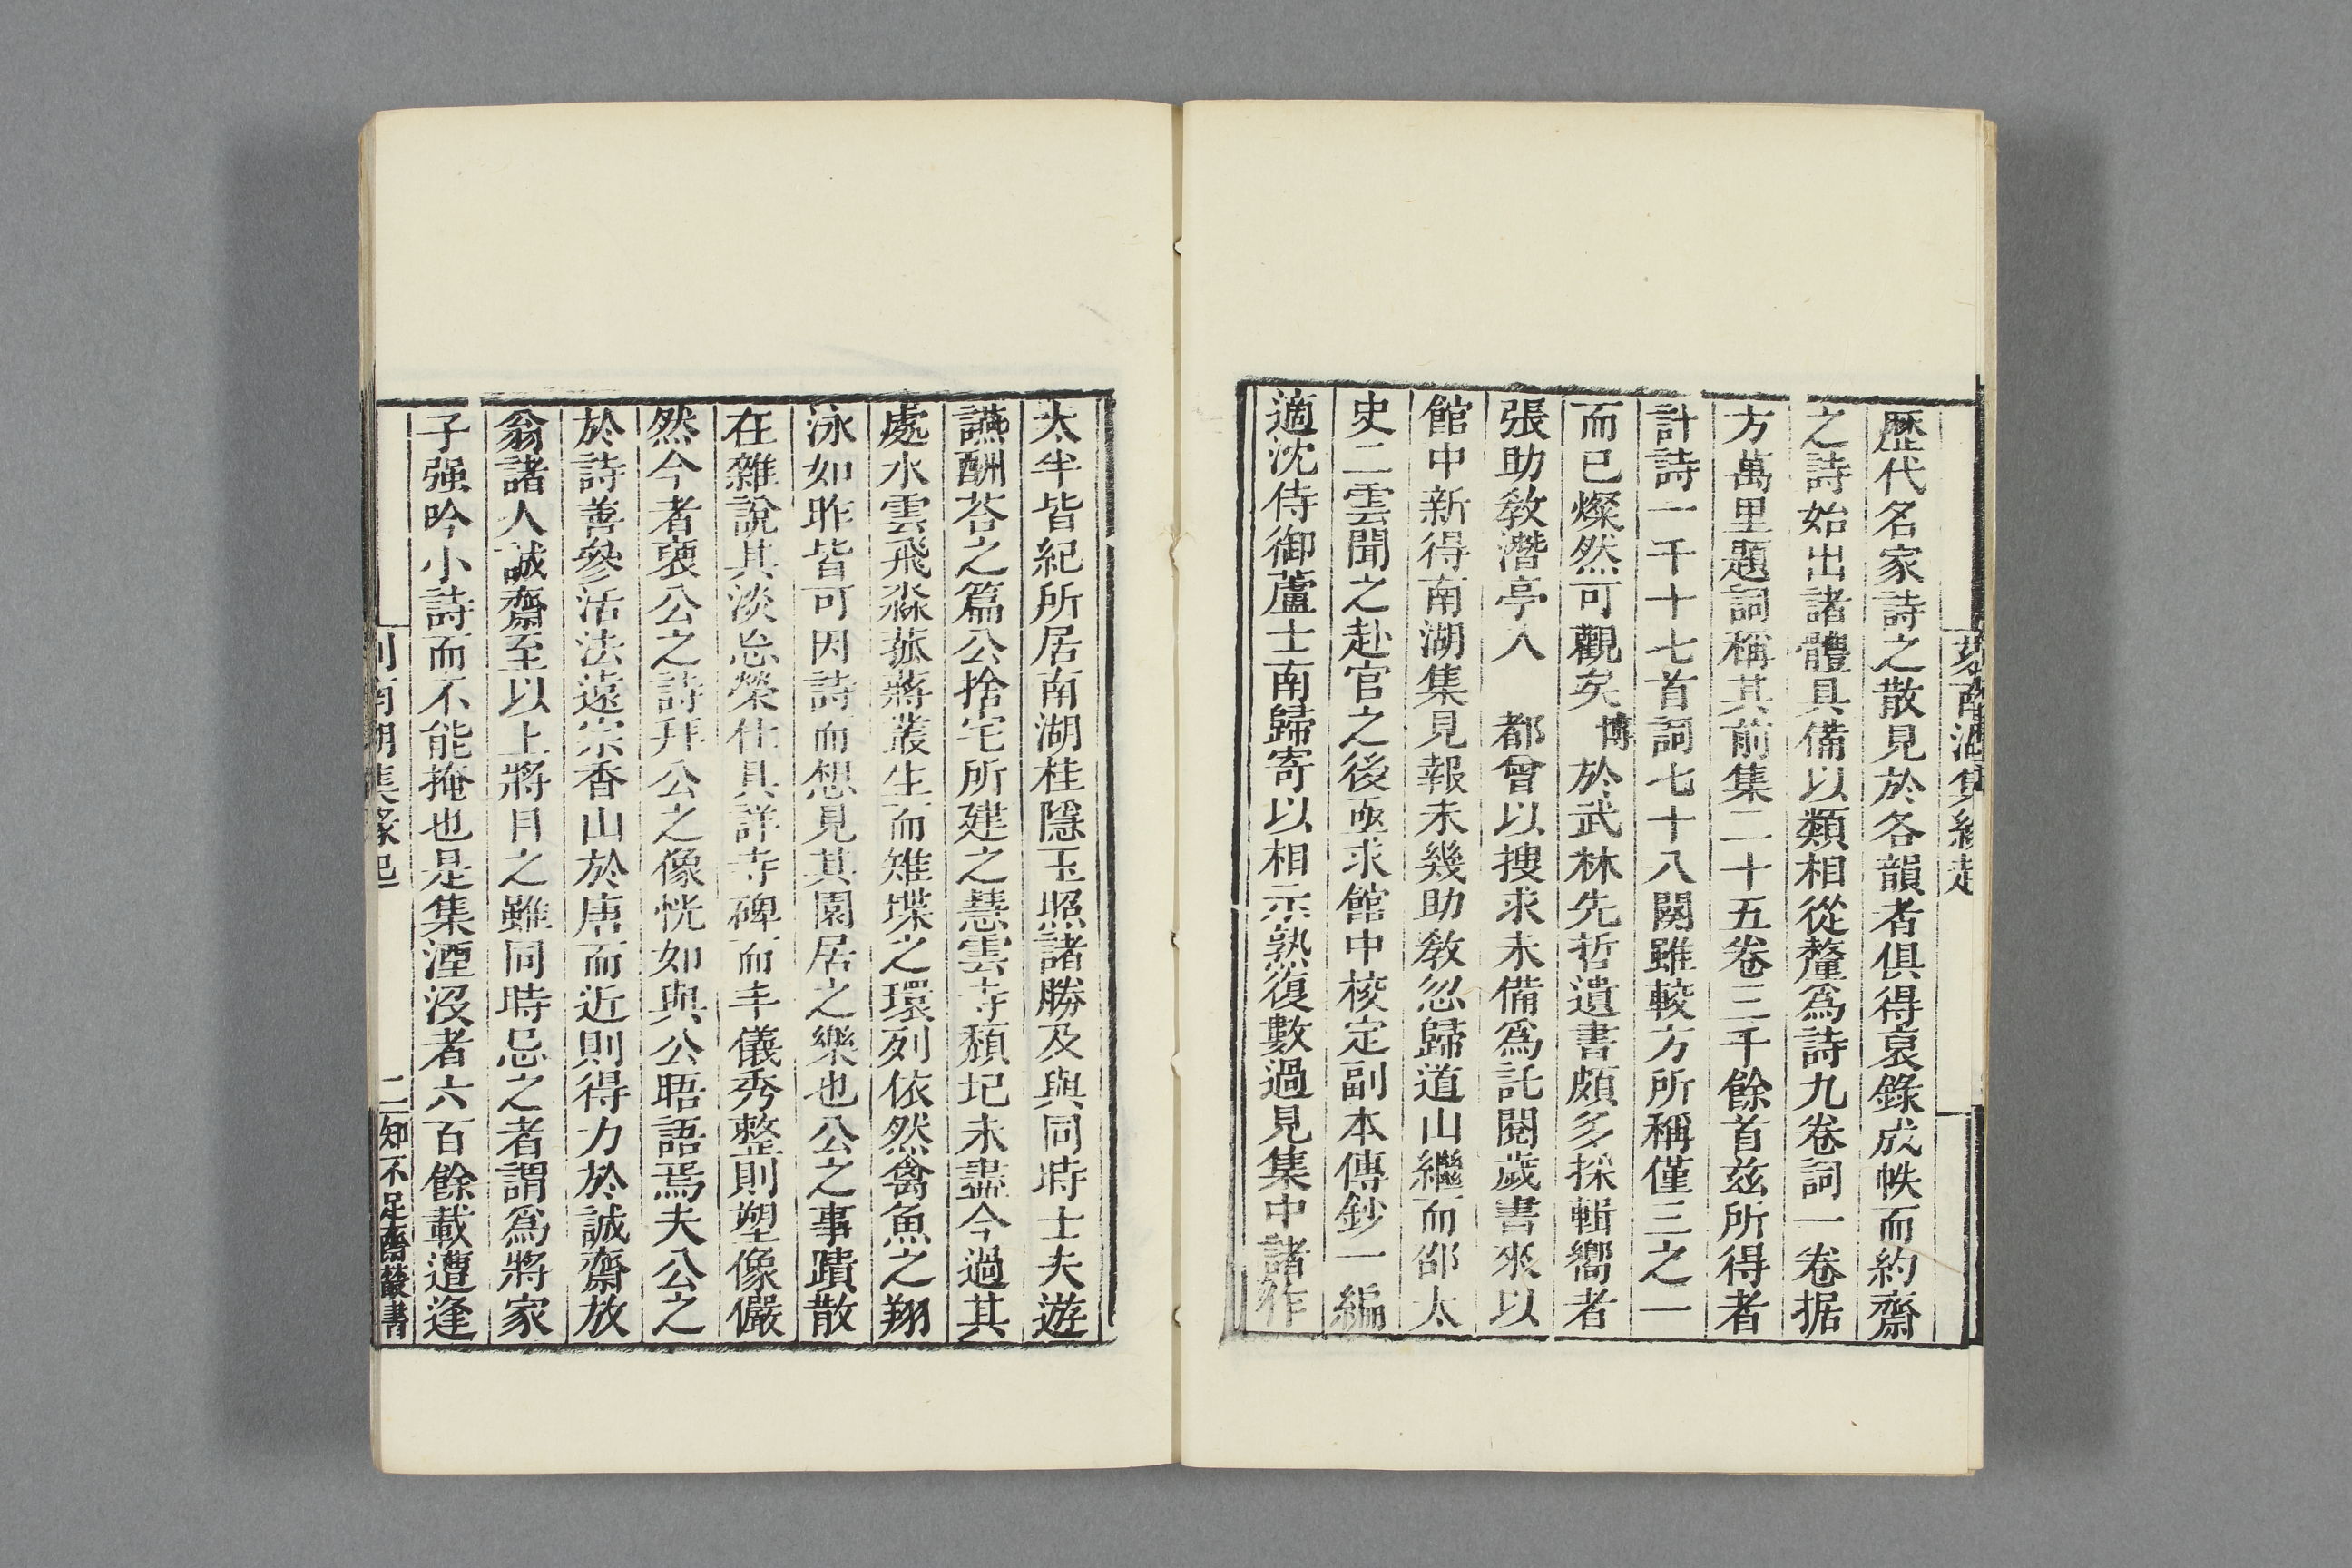 刻南湖集緣起
歷代名家詩之散見於各韻者俱得裒錄成帙而約齋
之詩始出諸體具備以類相從釐爲詩九卷詞一卷据
方萬里題詞稱其前集二十五卷三千餘首茲所得者
計詩一千十七首詞七十八闋雖較方所稱僅三之一
而已燦然可觀矣博於武林先哲遺書頗多採輯嚮者
張助教潛亭入 都曾以搜求未備爲託閱歲書來以
館中新得南湖集見報未幾助教忽歸道山繼而邵太
史二雲聞之赴官之後亟求館中校定副本傳鈔一編
適沈侍御蘆士南歸寄以相示熟復數過見集中諸作
太半皆紀所居南湖桂隱玉照諸勝及與同時士夫遊
讌酬荅之篇公捨宅所建之慧雲寺頹圮未盡今過其
處水雲飛淼菰蔣叢生而雉堞之環列依然禽魚之翔
泳如昨皆可因詩而想見其園居之樂也公之事蹟散
在雜說其淡怠榮仕具詳寺碑而丰儀秀整則塑像儼
然今者裒公之詩拜公之像恍如與公晤語焉夫公之
於詩善參活法遠宗香山於唐而近則得力於誠齋放
翁諸人誠齋至以上將目之雖同時忌之者謂爲將家
子强吟小詩而不能掩也是集湮沒者六百餘載遭逢
刻南湖集緣起
二
知不足齋叢書